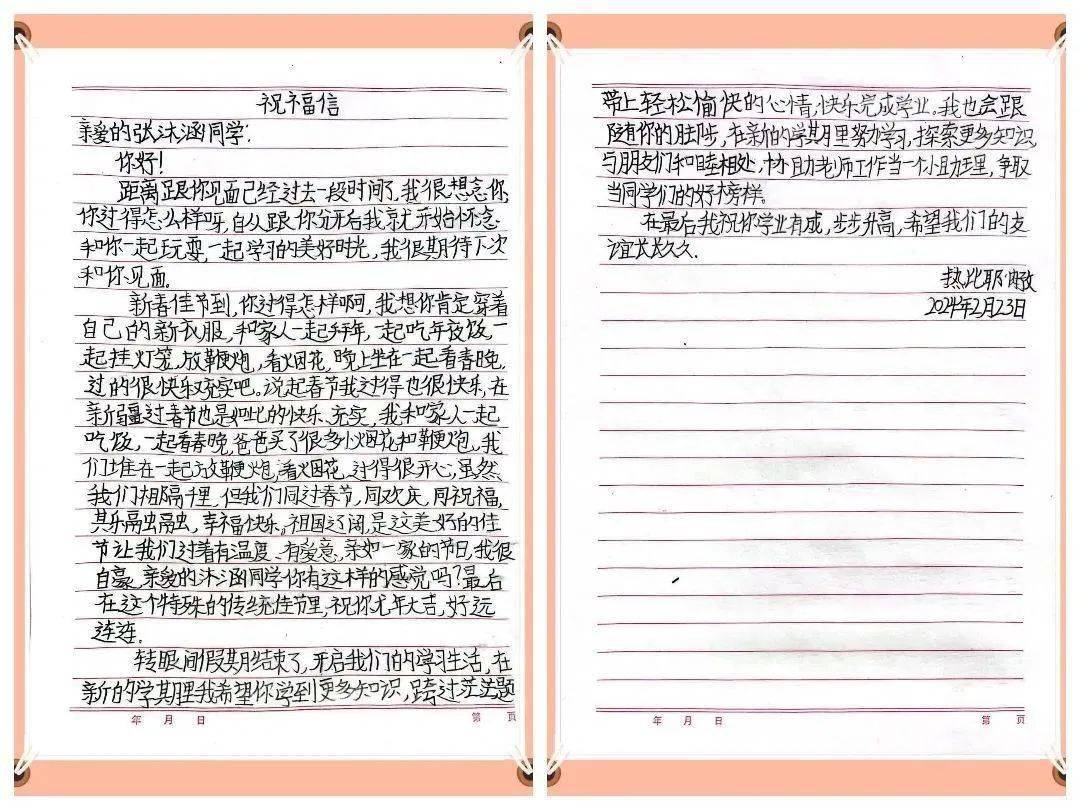 祝福信
亲爱的张沐涵同学:
你好!
距离跟你见面已经过去一段时间了,我很想念你,
你过得怎么样呀,自从跟你分开后我就开始怀念
和你一起玩耍,一起学习的美好时光,我很期待下次
和你见面。
新春佳节到,你过得怎样啊,我想你肯定穿着
自己的新衣服,和家人一起拜年,一起吃年夜饭,一
起挂灯笼,放鞭炮,看烟花,晚上坐在一起看春晚,
过的很快乐充实吧。说起春节我过得也很快乐,在
新疆过春节也是如此的快乐、充实,我和家人一起
吃饭,一起看春晚,爸爸买了很多小烟花和鞭炮,我
们堆在一起放鞭炮,看烟花,过得很开心,虽然
我们相隔千里,但我们同过春节,同欢庆,同祝福,
其乐融融,幸福快乐。祖国辽阔,是这美好的佳
节让我们过着有温度、有爱意,亲如一家的节日,我很
自豪,亲爱的沐涵同学你有这样的感觉吗?最后
在这个特殊的传统佳节里,祝你龙年大吉,好运
连连。
转眼间假期结束了,开启我们的学习生活,在
新的学期里我希望你学到更多知识,跨过茫茫题
年 月 日 第 页
带上轻松愉快的心情,快乐完成学业。我也会跟
随你的脚步,在新的学期里努力学习,探索更多知识,
与朋友们和睦相处,协助老师工作当一个小助理,争取
当同学们的好榜样。
在最后我祝你学业有成,步步升高,希望我们的友
谊长长久久.
热比耶·
2024年2月23日
年 月 日 第 页